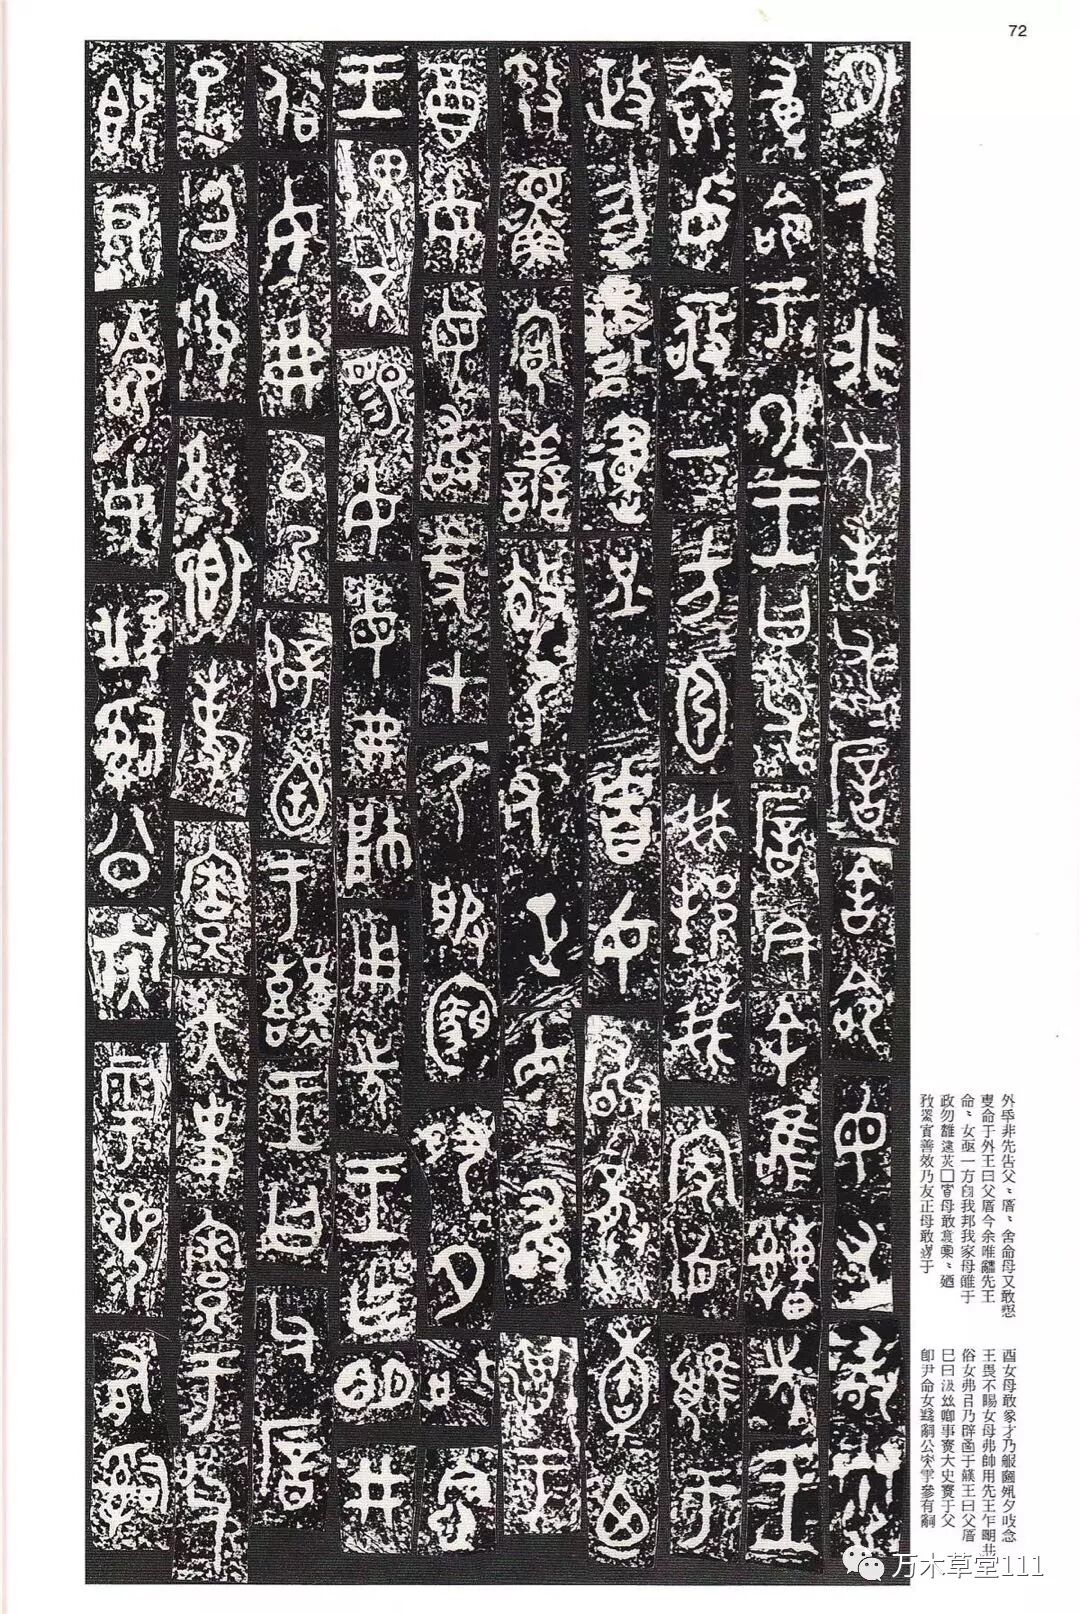 72
外氒非先告父〻厝〻舍命母又敢惷
尃命于外王曰父厝今余唯䌛先王
命〻女亟一方我邦我家母于
政勿雝逮□母敢龏橐〻廼
敄鰥寡善效乃友正母敢于
酉女母敢豙才乃服圅夙夕敬念
王畏不睗女母弗帥用先王乍明井
俗女弗㠯乃辟圅于囏王曰父厝
巳曰彶𢆶卿事寮大史寮于父
卽尹命女𤔲公族雩參有𤔲
万木草堂111